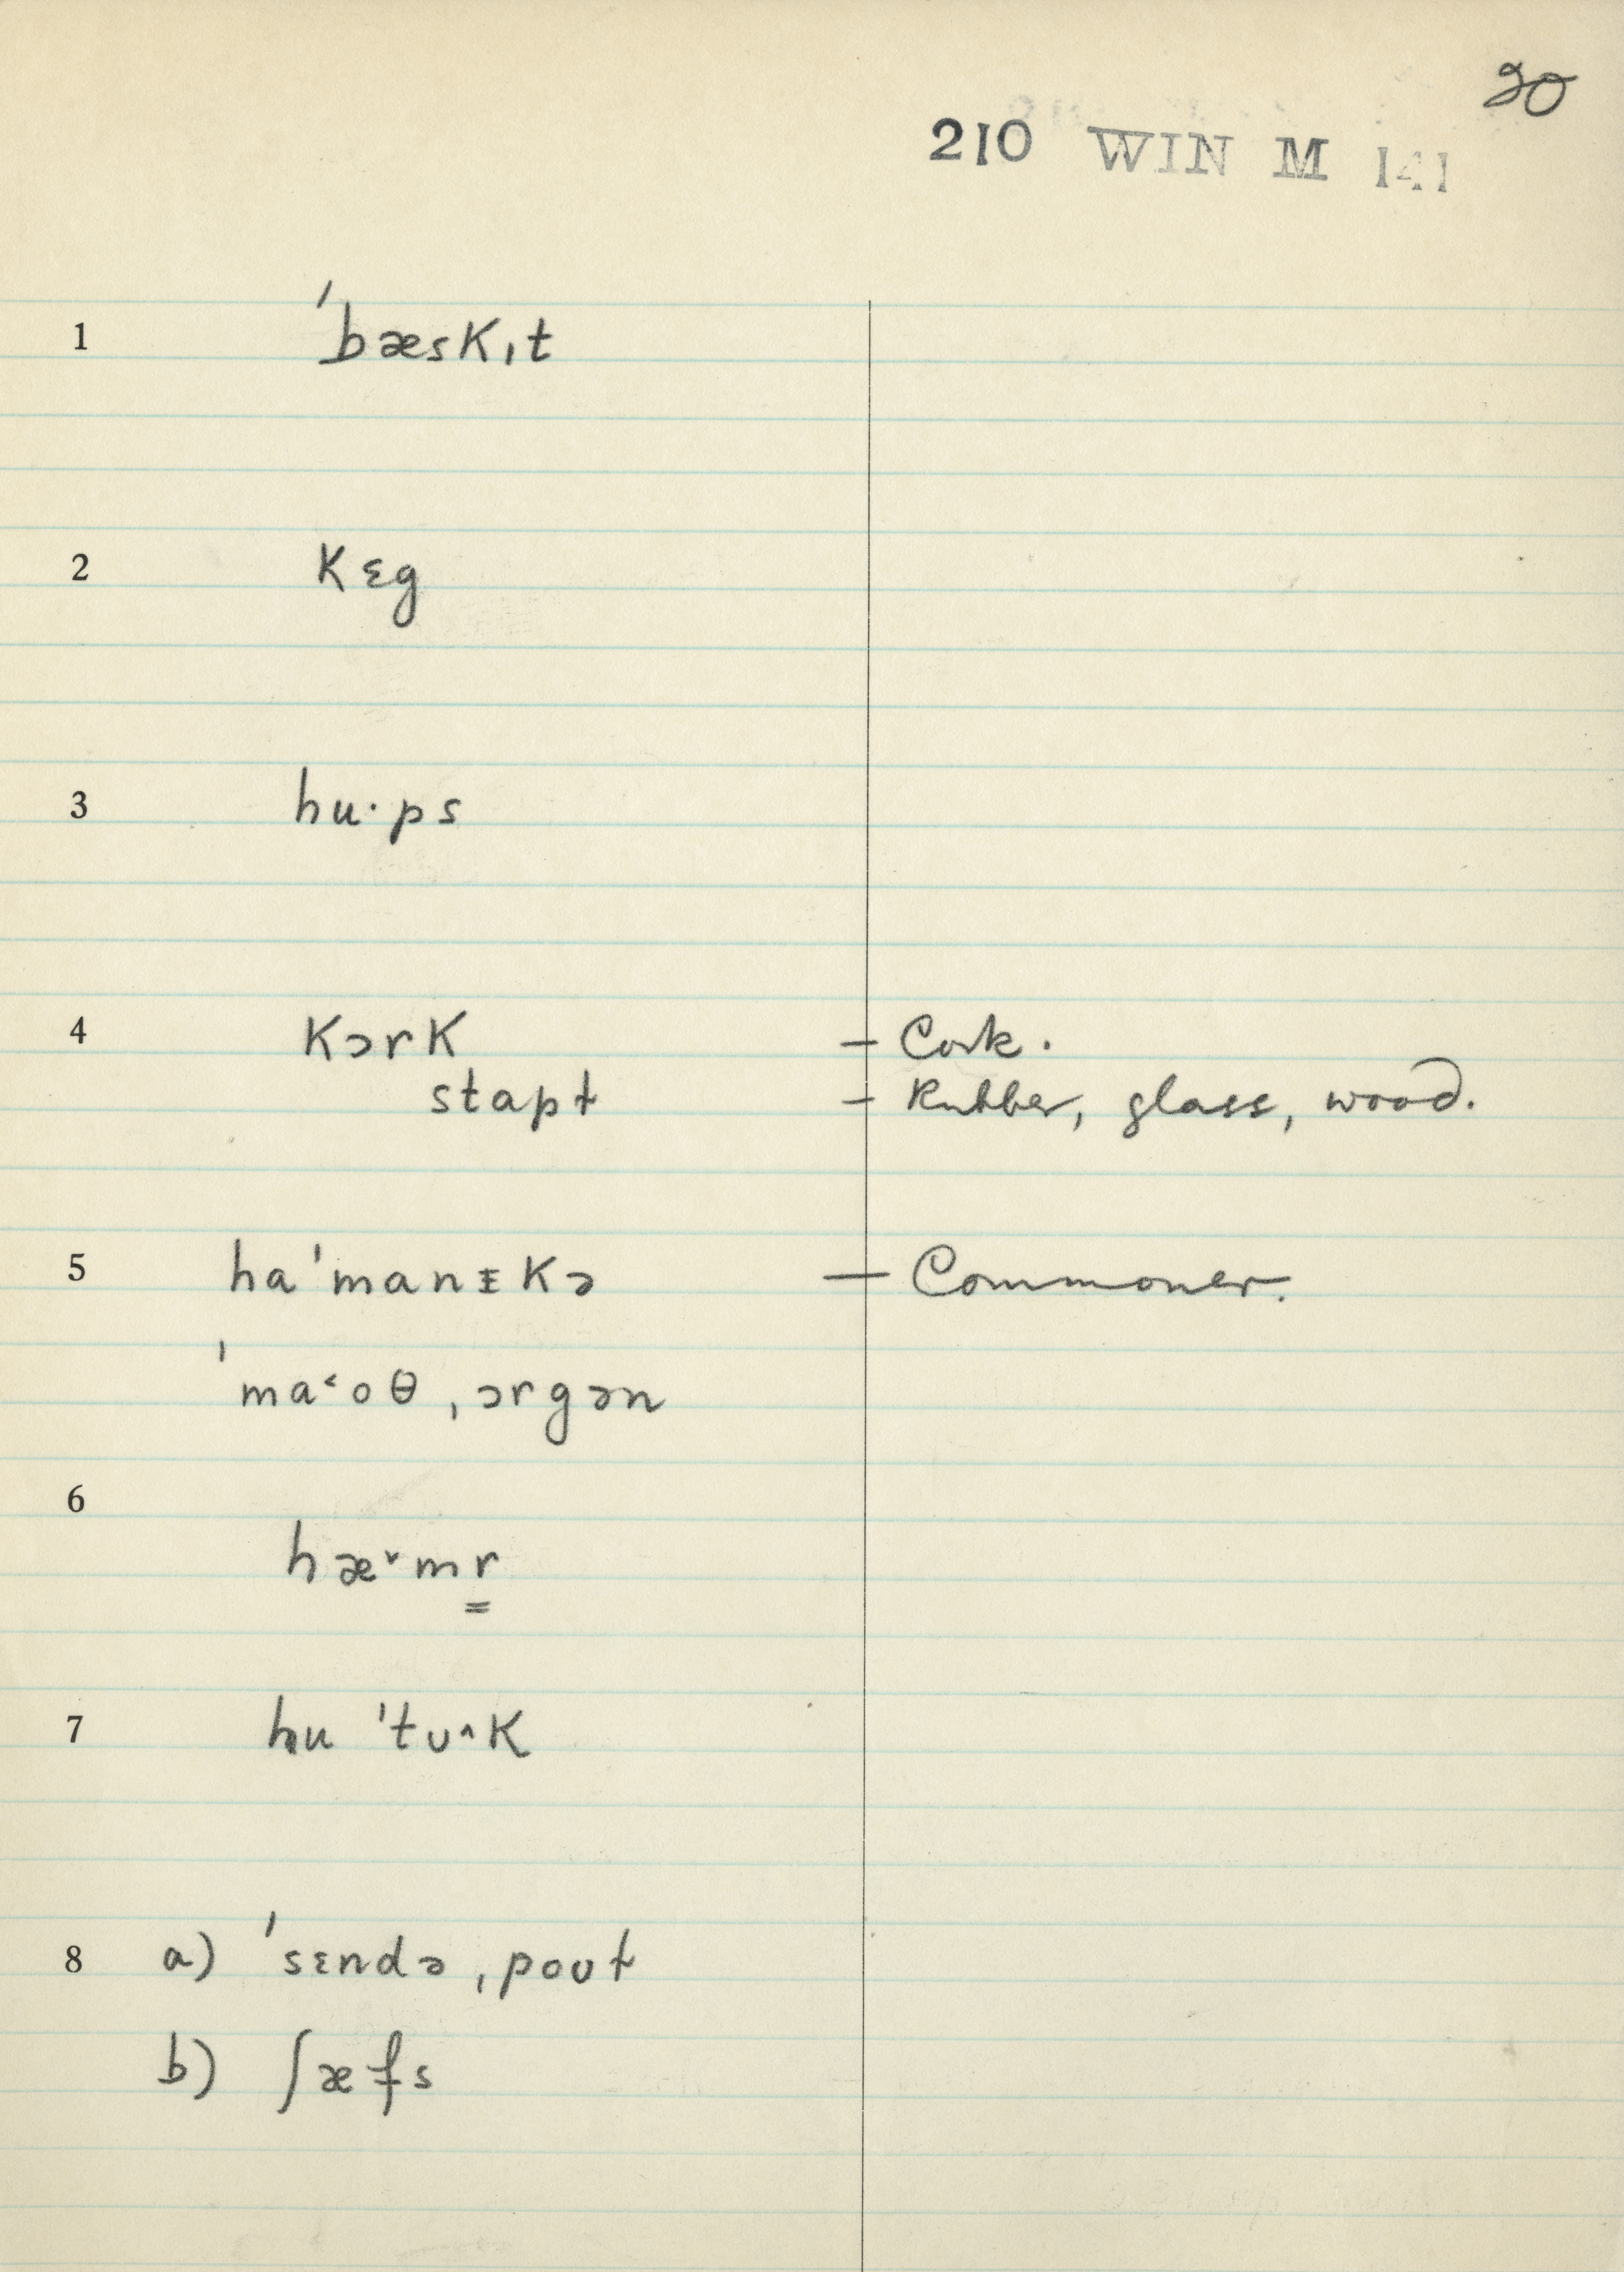 20
210 WIN M 141
1 ˈbæskɪt
2 kɛg
3 hu·ps
4 kɔrk – Cork.
stapɫ – Rubber, glass, wood.
5 haˈmanɪkə – Commoner.
ˈma˂oθ ˌɔrgən
6
hæ˅mr̳
7 hu ˈtʊ˄k
8 a) ˈsɛndə ˌpoʊɫ
b) ʃæfs